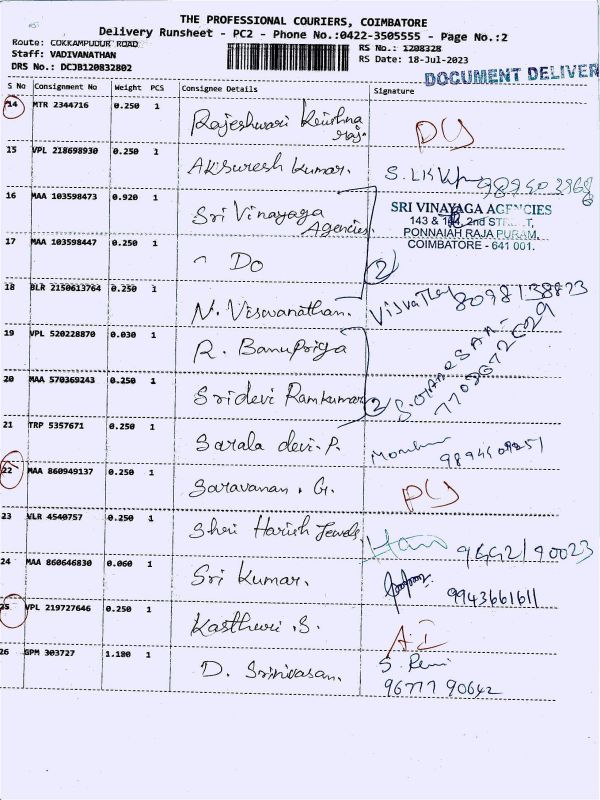 THE PROFESSIONAL COURIERS, COIMBATORE
Delivery Runsheet - PC2 - Phone No.:0422-3505555 - Page No.:2
Route: COKKAMPUDUR ROAD
Staff: VADIVANATHAN
DRS No.: DCJB120832802
RS No.: 1208328
RS Date: 18-Jul-2023
DOCUMENT DELIVER
S No Consignment No Weight PCS Consignee Details Signature
14 MTR 2344716 0.250 1 Rajeshwari Krishna raj. PCY
15 VPL 218698930 0.250 1 AKSuresh Kumar.
16 MAA 103598473 0.920 1 Sri Vinayaga Agencies
SRI VINAYAGA AGENCIES
2nd
PONNAIAH RAJA PURAM,
COIMBATORE - 641 001.
17 MAA 103598447 0.250 1 " Do 2
18 BLR 2150613764 0.250 1 N. Viswanathan. 8098138823
19 VPL 520228870 0.030 1 R. Banupriya
20 MAA 570369243 0.250 1 Sridevi Ramkumar 2
21 TRP 5357671 0.250 1 Sarala devi. P.
22 MAA 860949137 0.250 1 Saravanan. G. PCY
23 VLR 4540757 0.250 1 Shri Harish Jewels
24 MAA 860646830 0.060 1 Sri Kumar. 9943661611
25 VPL 219727646 0.250 1 Kastheuri .S.
26 GPM 303727 1.180 1 D. Srinivasan.
96777 90642